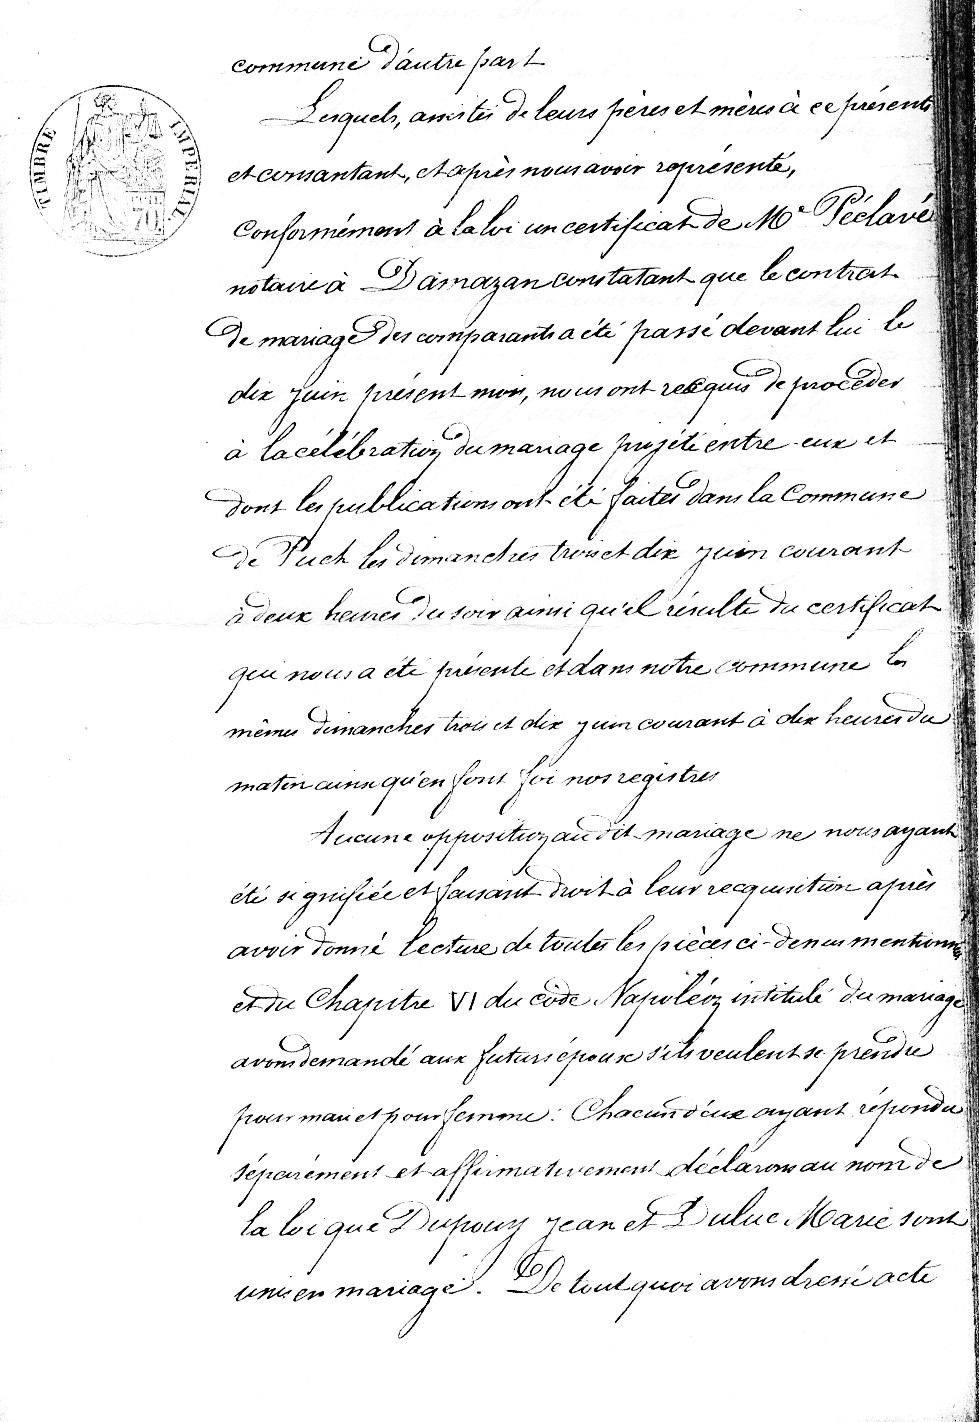 TIMBRE IMPERIAL
70
commune d'autre part
Lesquels, assistés de leurs pères et mères à ce présents
et consantant, et après nous avoir représenté,
conformément à la loi un certificat de Me Péclavé
notaire à Damazan constatant que le contrat
de mariage des comparants a été passé devant lui le
dix juin présent mois, nous ont recquis de procéder
à la célébration du mariage projété entre eux et
dont les publications ont été faites dans la Commune
de Puch les dimanches trois et dix juin courant
à deux heures du soir ainsi qu'il résulte du certificat
qui nous a été présenté et dans notre commune les
mêmes dimanches trois et dix juin courant à dix heures du
matin ainsi qu'en font foi nos registres
Aucune opposition au dit mariage ne nous ayant
été signifiée et faisant droit à leur recquisition après
avoir donné lecture de toutes les pièces ci-dessus mentionnées
et du Chapitre VI du code Napoléon intitulé du mariage
avons demandé aux futurs époux s'ils veulent se prendre
pour mari et pour femme : Chacun d'eux ayant répondu
séparément et affirmativement déclarons au nom de
la loi que Dupouy Jean et Duluc Marie sont
unis en mariage. De tout quoi avons dressé acte